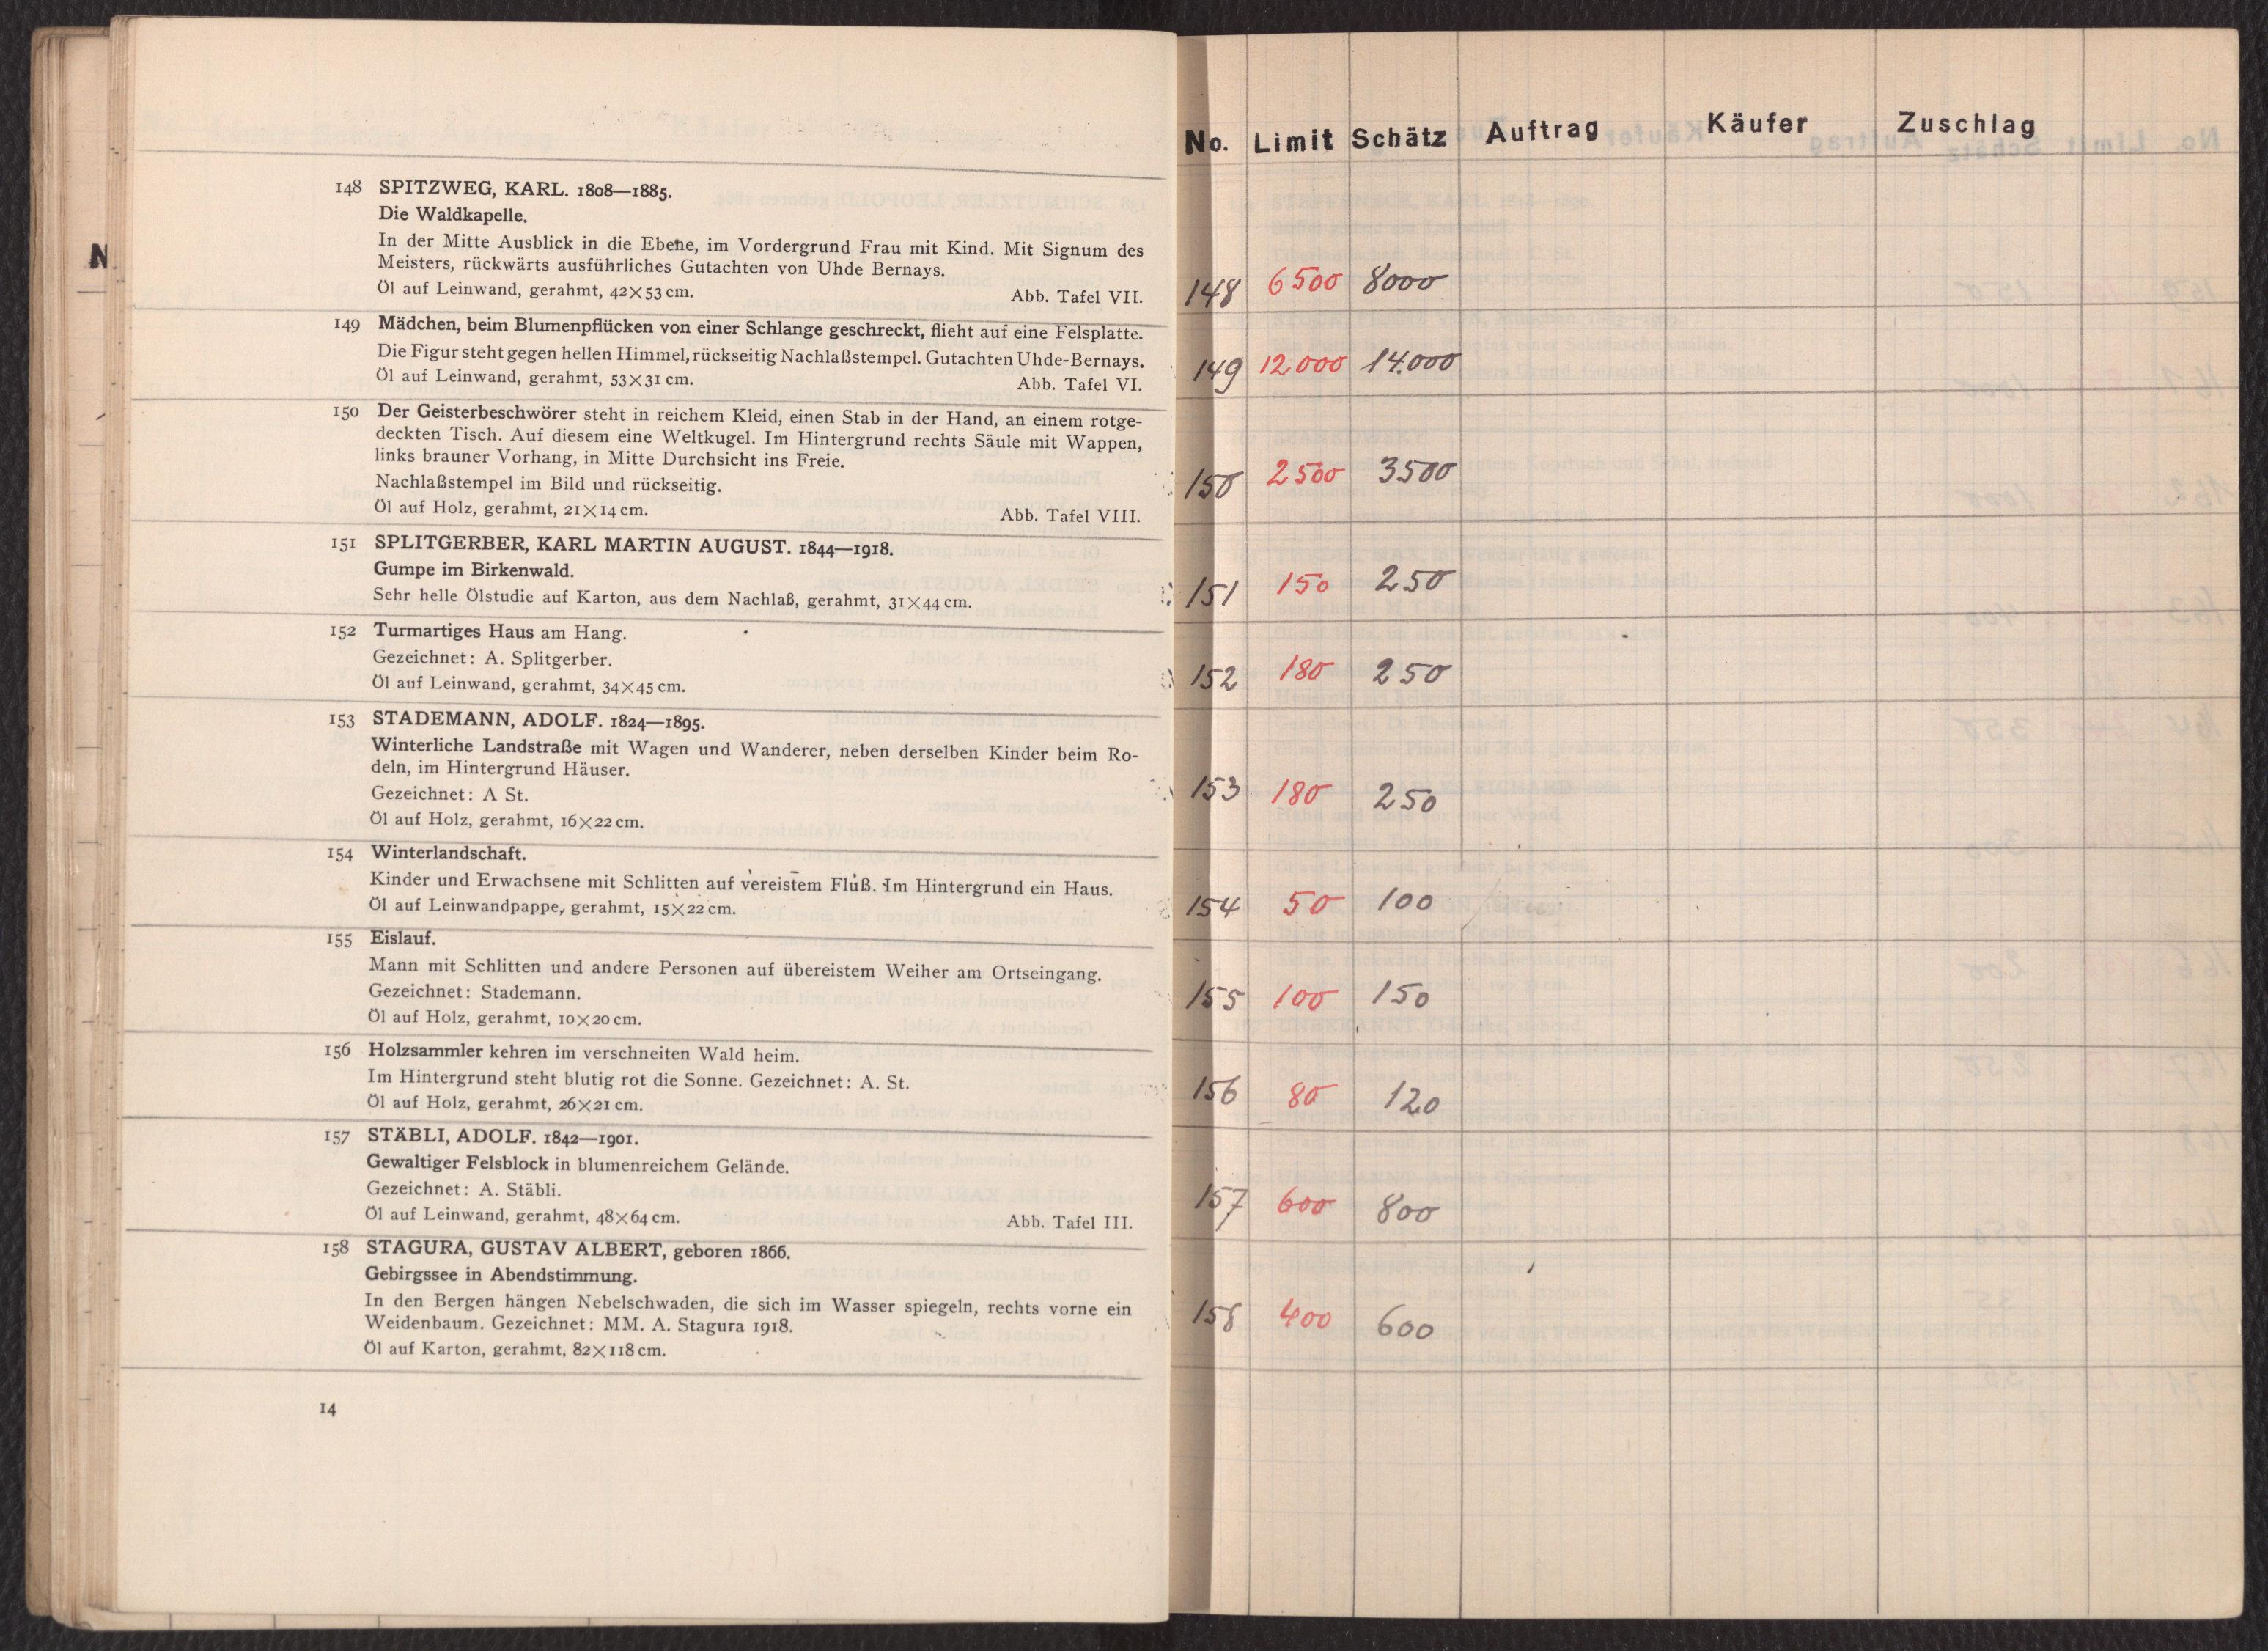 148 SPITZWEG, KARL. 1808—1885.
Die Waldkapelle.
In der Mitte Ausblick in die Ebene, im Vordergrund Frau mit Kind. Mit Signum des
Meisters, rückwärts ausführliches Gutachten von Uhde Bernays.
Öl auf Leinwand, gerahmt, 42×53 cm. Abb. Tafel VII.
149 Mädchen, beim Blumenpflücken von einer Schlange geschreckt, flieht auf eine Felsplatte.
Die Figur steht gegen hellen Himmel, rückseitig Nachlaßstempel. Gutachten Uhde-Bernays.
Öl auf Leinwand, gerahmt, 53×31 cm. Abb. Tafel VI.
150 Der Geisterbeschwörer steht in reichem Kleid, einen Stab in der Hand, an einem rotge-
deckten Tisch. Auf diesem eine Weltkugel. Im Hintergrund rechts Säule mit Wappen,
links brauner Vorhang, in Mitte Durchsicht ins Freie.
Nachlaßstempel im Bild und rückseitig.
Öl auf Holz, gerahmt, 21×14 cm. Abb. Tafel VIII.
151 SPLITGERBER, KARL MARTIN AUGUST. 1844—1918.
Gumpe im Birkenwald.
Sehr helle Ölstudie auf Karton, aus dem Nachlaß, gerahmt, 31×44 cm.
152 Turmartiges Haus am Hang.
Gezeichnet: A. Splitgerber.
Öl auf Leinwand, gerahmt, 34×45 cm.
153 STADEMANN, ADOLF. 1824—1895.
Winterliche Landstraße mit Wagen und Wanderer, neben derselben Kinder beim Ro-
deln, im Hintergrund Häuser.
Gezeichnet: A St.
Öl auf Holz, gerahmt, 16×22 cm.
154 Winterlandschaft.
Kinder und Erwachsene mit Schlitten auf vereistem Fluß. Im Hintergrund ein Haus.
Öl auf Leinwandpappe, gerahmt, 15×22 cm.
155 Eislauf.
Mann mit Schlitten und andere Personen auf übereistem Weiher am Ortseingang.
Gezeichnet: Stademann.
Öl auf Holz, gerahmt, 10×20 cm.
156 Holzsammler kehren im verschneiten Wald heim.
Im Hintergrund steht blutig rot die Sonne. Gezeichnet: A. St.
Öl auf Holz, gerahmt, 26×21 cm.
157 STÄBLI, ADOLF. 1842—1901.
Gewaltiger Felsblock in blumenreichem Gelände.
Gezeichnet: A. Stäbli.
Öl auf Leinwand, gerahmt, 48×64 cm. Abb. Tafel III.
158 STAGURA, GUSTAV ALBERT, geboren 1866.
Gebirgssee in Abendstimmung.
In den Bergen hängen Nebelschwaden, die sich im Wasser spiegeln, rechts vorne ein
Weidenbaum. Gezeichnet: MM. A. Stagura 1918.
Öl auf Karton, gerahmt, 82×118 cm.
14
N
No. Limit Schätz Auftrag Käufer Zuschlag
148 6500 8000
149 12000 14.000
150 2500 3500
151 150 250
152 180 250
153 180 250
154 50 100
155 100 150
156 80 120
157 600 800
158 400 600